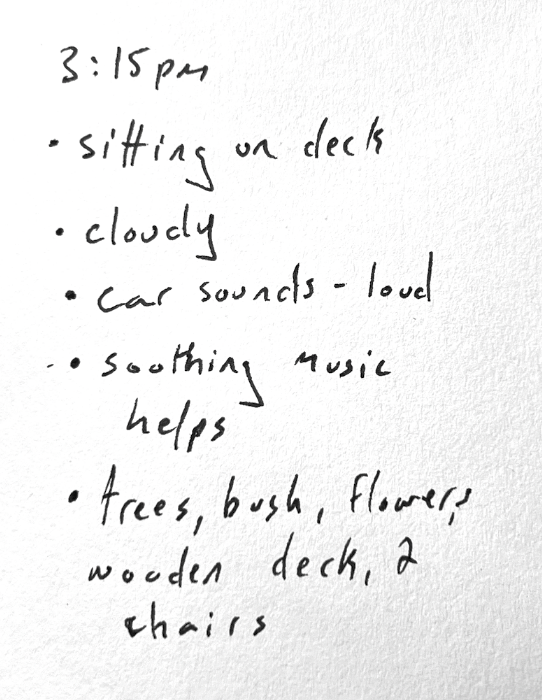 3:15pm
• sitting on deck
• cloudy
• car sounds - loud
• soothing music
helps
• trees, bush, flowers,
wooden deck, 2
chairs